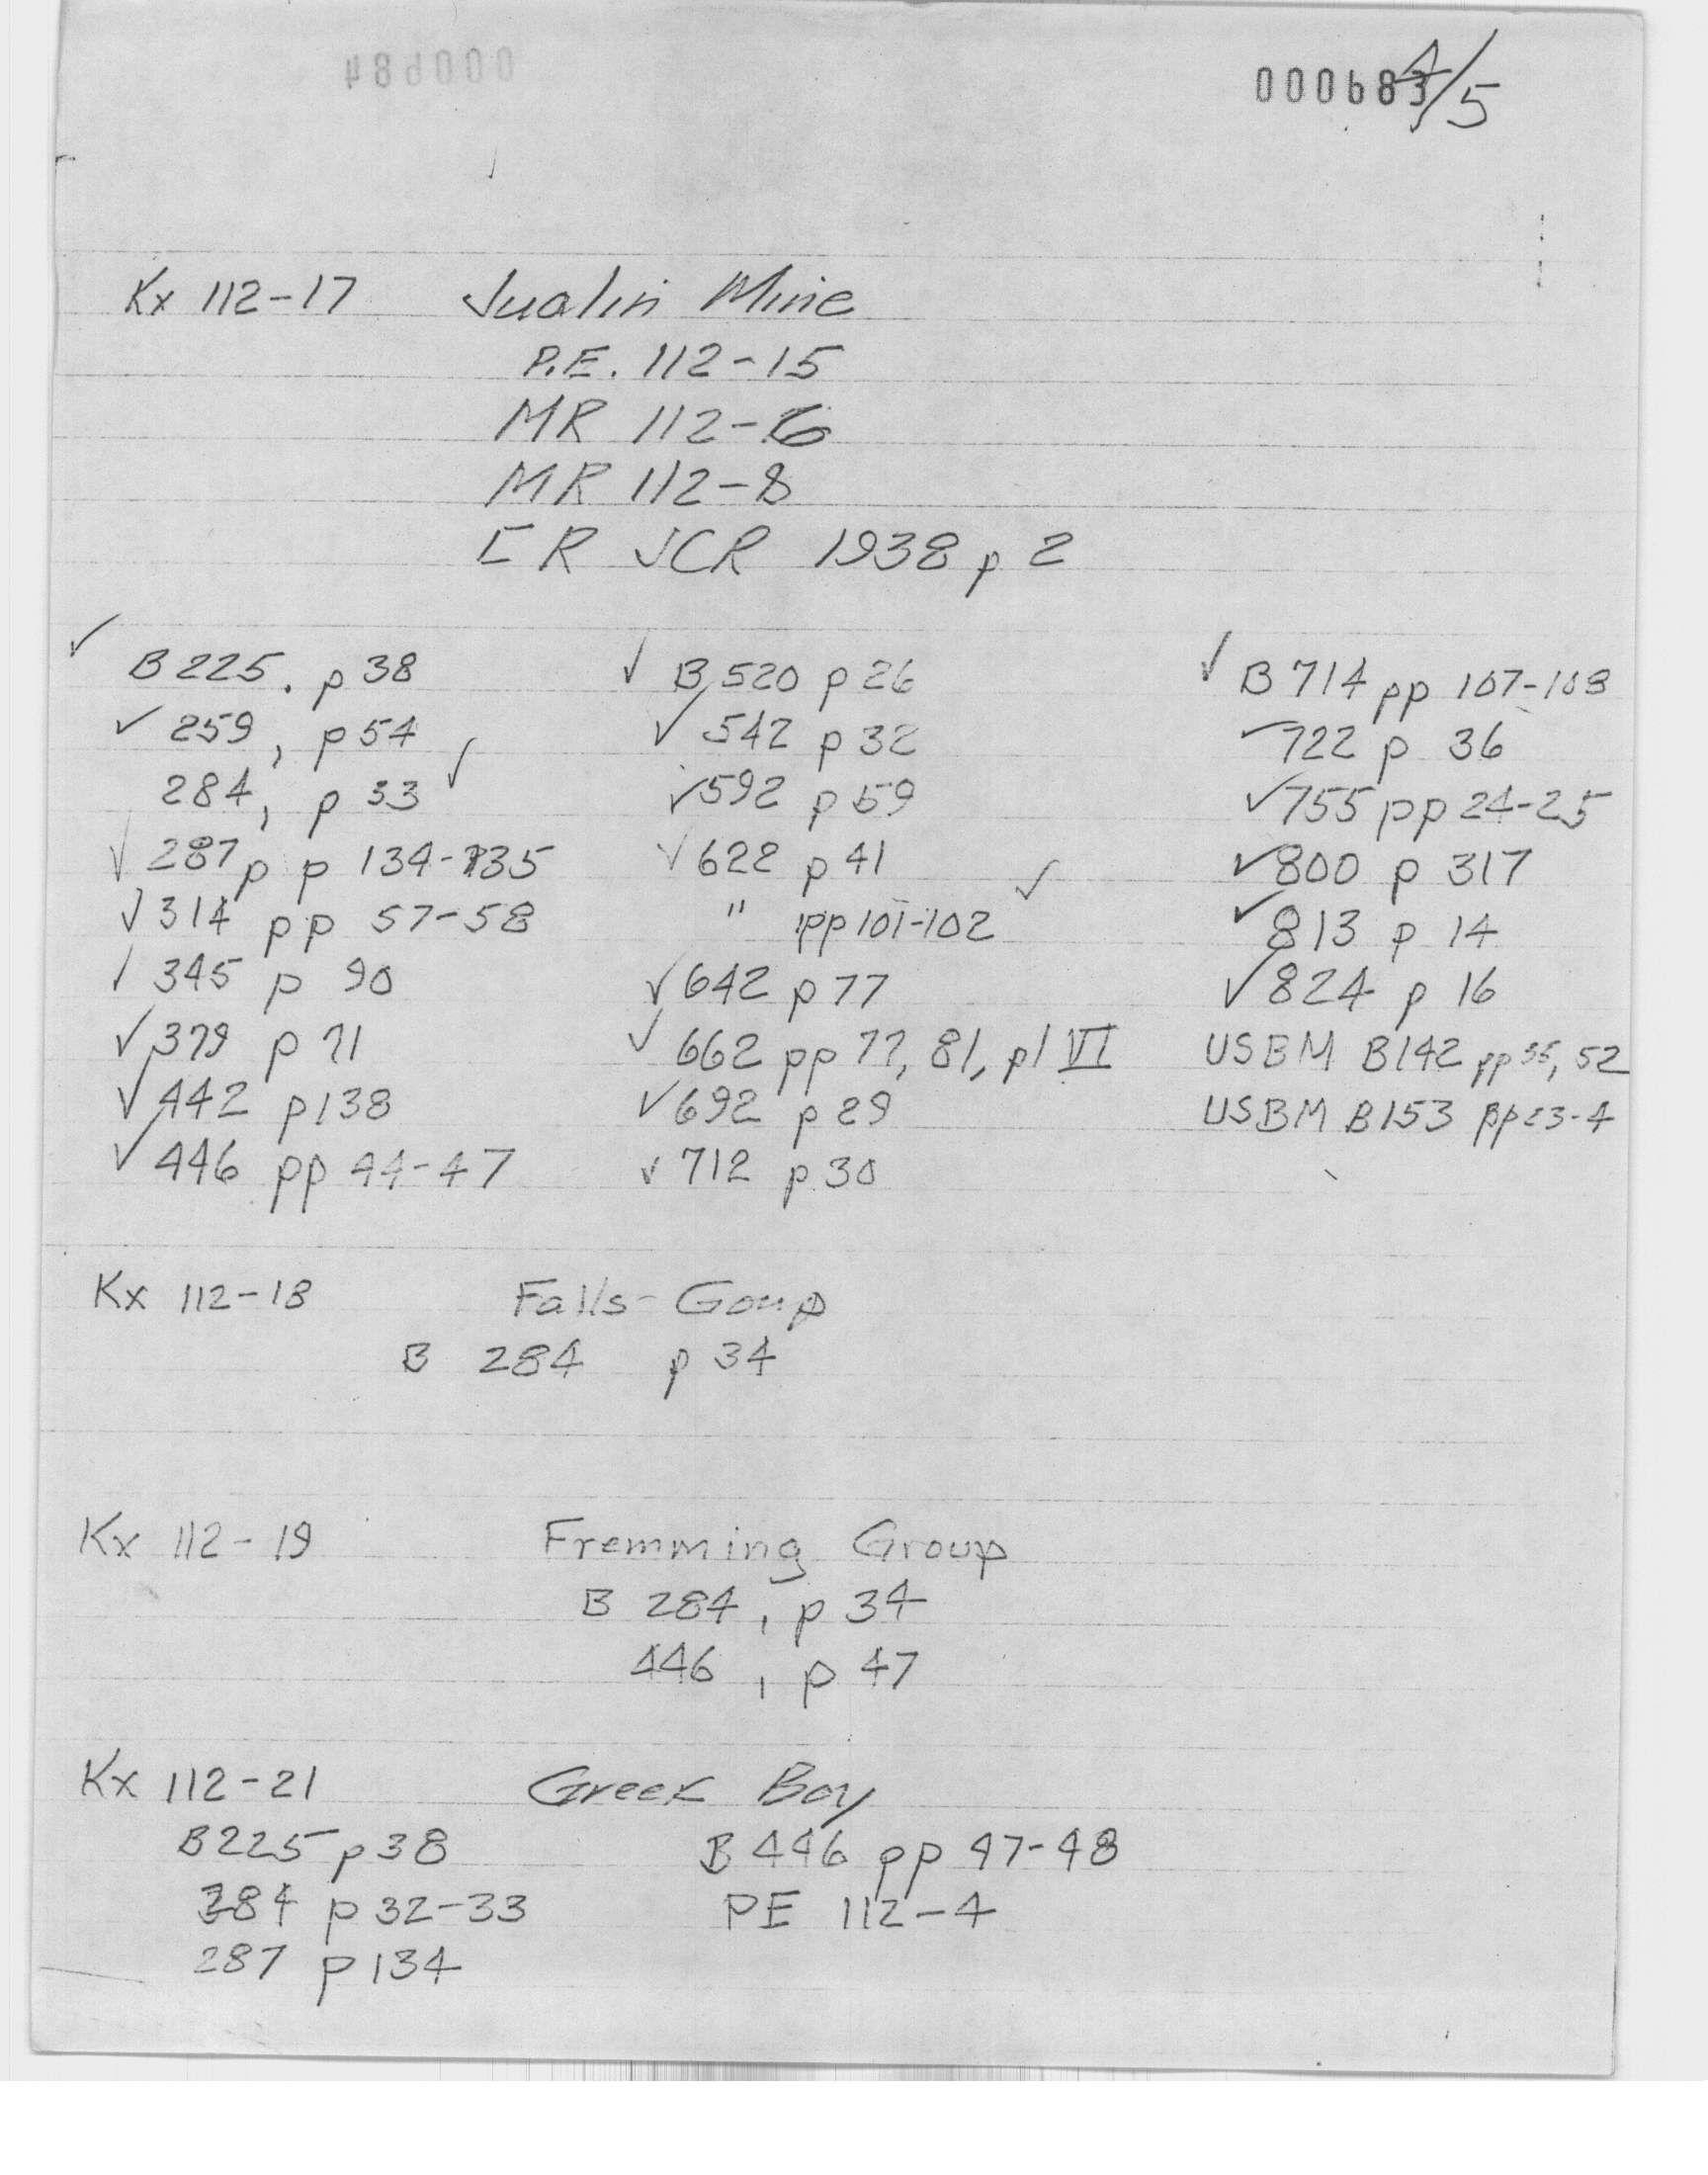 4/5
Kx 112-17 Jualin Mine
P.E. 112-15
MR 112-6
MR 112-8
IR JCR 1938 p 2
✓ B 225. p 38
✓ 259, p 54
284, p 33 ✓
✓ 287 p p 134-135
✓ 314 pp 57-58
✓ 345 p 90
✓ 379 p 71
✓ 442 p 138
✓ 446 pp 44-47
✓ B 520 p 26
✓ 542 p 32
✓ 592 p 59
✓ 622 p 41
" pp 101-102 ✓
✓ 642 p 77
✓ 662 pp 77, 81, pl VI
✓ 692 p 29
✓ 712 p 30
✓ B 714 pp 107-108
✓ 722 p 36
✓ 755 pp 24-25
✓ 800 p 317
✓ 813 p 14
✓ 824 p 16
USBM B142 pp 35, 52
USBM B153 pp 23-4
Kx 112-18 Falls Goup
B 284 p 34
Kx 112-19 Fremming Group
B 284, p 34
446, p 47
Kx 112-21 Greek Boy
B225 p 38
284 p 32-33
287 p 134
B 446 pp 47-48
PE 112-4